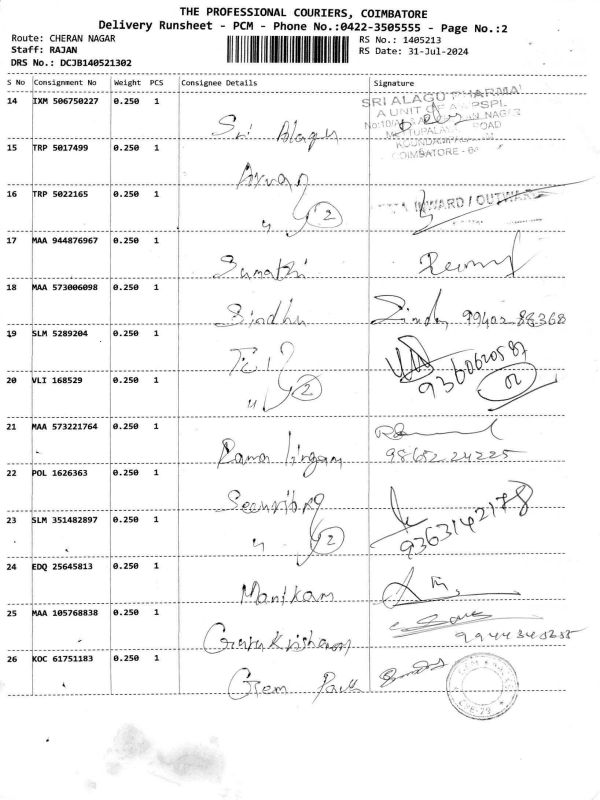 THE PROFESSIONAL COURIERS, COIMBATORE
Delivery Runsheet - PCM - Phone No.:0422-3505555 - Page No.:2
Route: CHERAN NAGAR RS No.: 1405213
Staff: RAJAN RS Date: 31-Jul-2024
DRS No.: DCJB140521302
S No Consignment No Weight PCS Consignee Details Signature
14 IXM 506750227 0.250 1 Sri Alagu
SRI ALAGU PHARMA
A UNIT OF
ROAD
COIMBATORE
15 TRP 5017499 0.250 1
16 TRP 5022165 0.250 1 " 2
INWARD / OUTWARD
17 MAA 944876967 0.250 1 Sumathi
18 MAA 573006098 0.250 1 Sindhu 99402 88368
19 SLM 5289204 0.250 1 9360620587
20 VLI 168529 0.250 1 " 2 02
21 MAA 573221764 0.250 1 Rama lingam 98652 24225
22 POL 1626363 0.250 1
23 SLM 351482897 0.250 1 " 2 9363142178
24 EDQ 25645813 0.250 1 Manikam
25 MAA 105768838 0.250 1
26 KOC 61751183 0.250 1 Gem Park